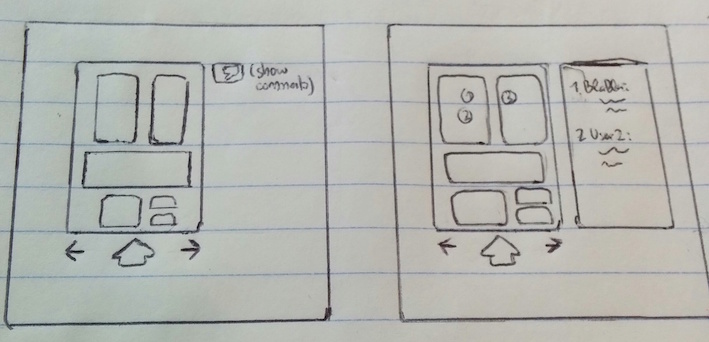 (show
comments)
1
2
3
1. BlaBla:
2 User2: